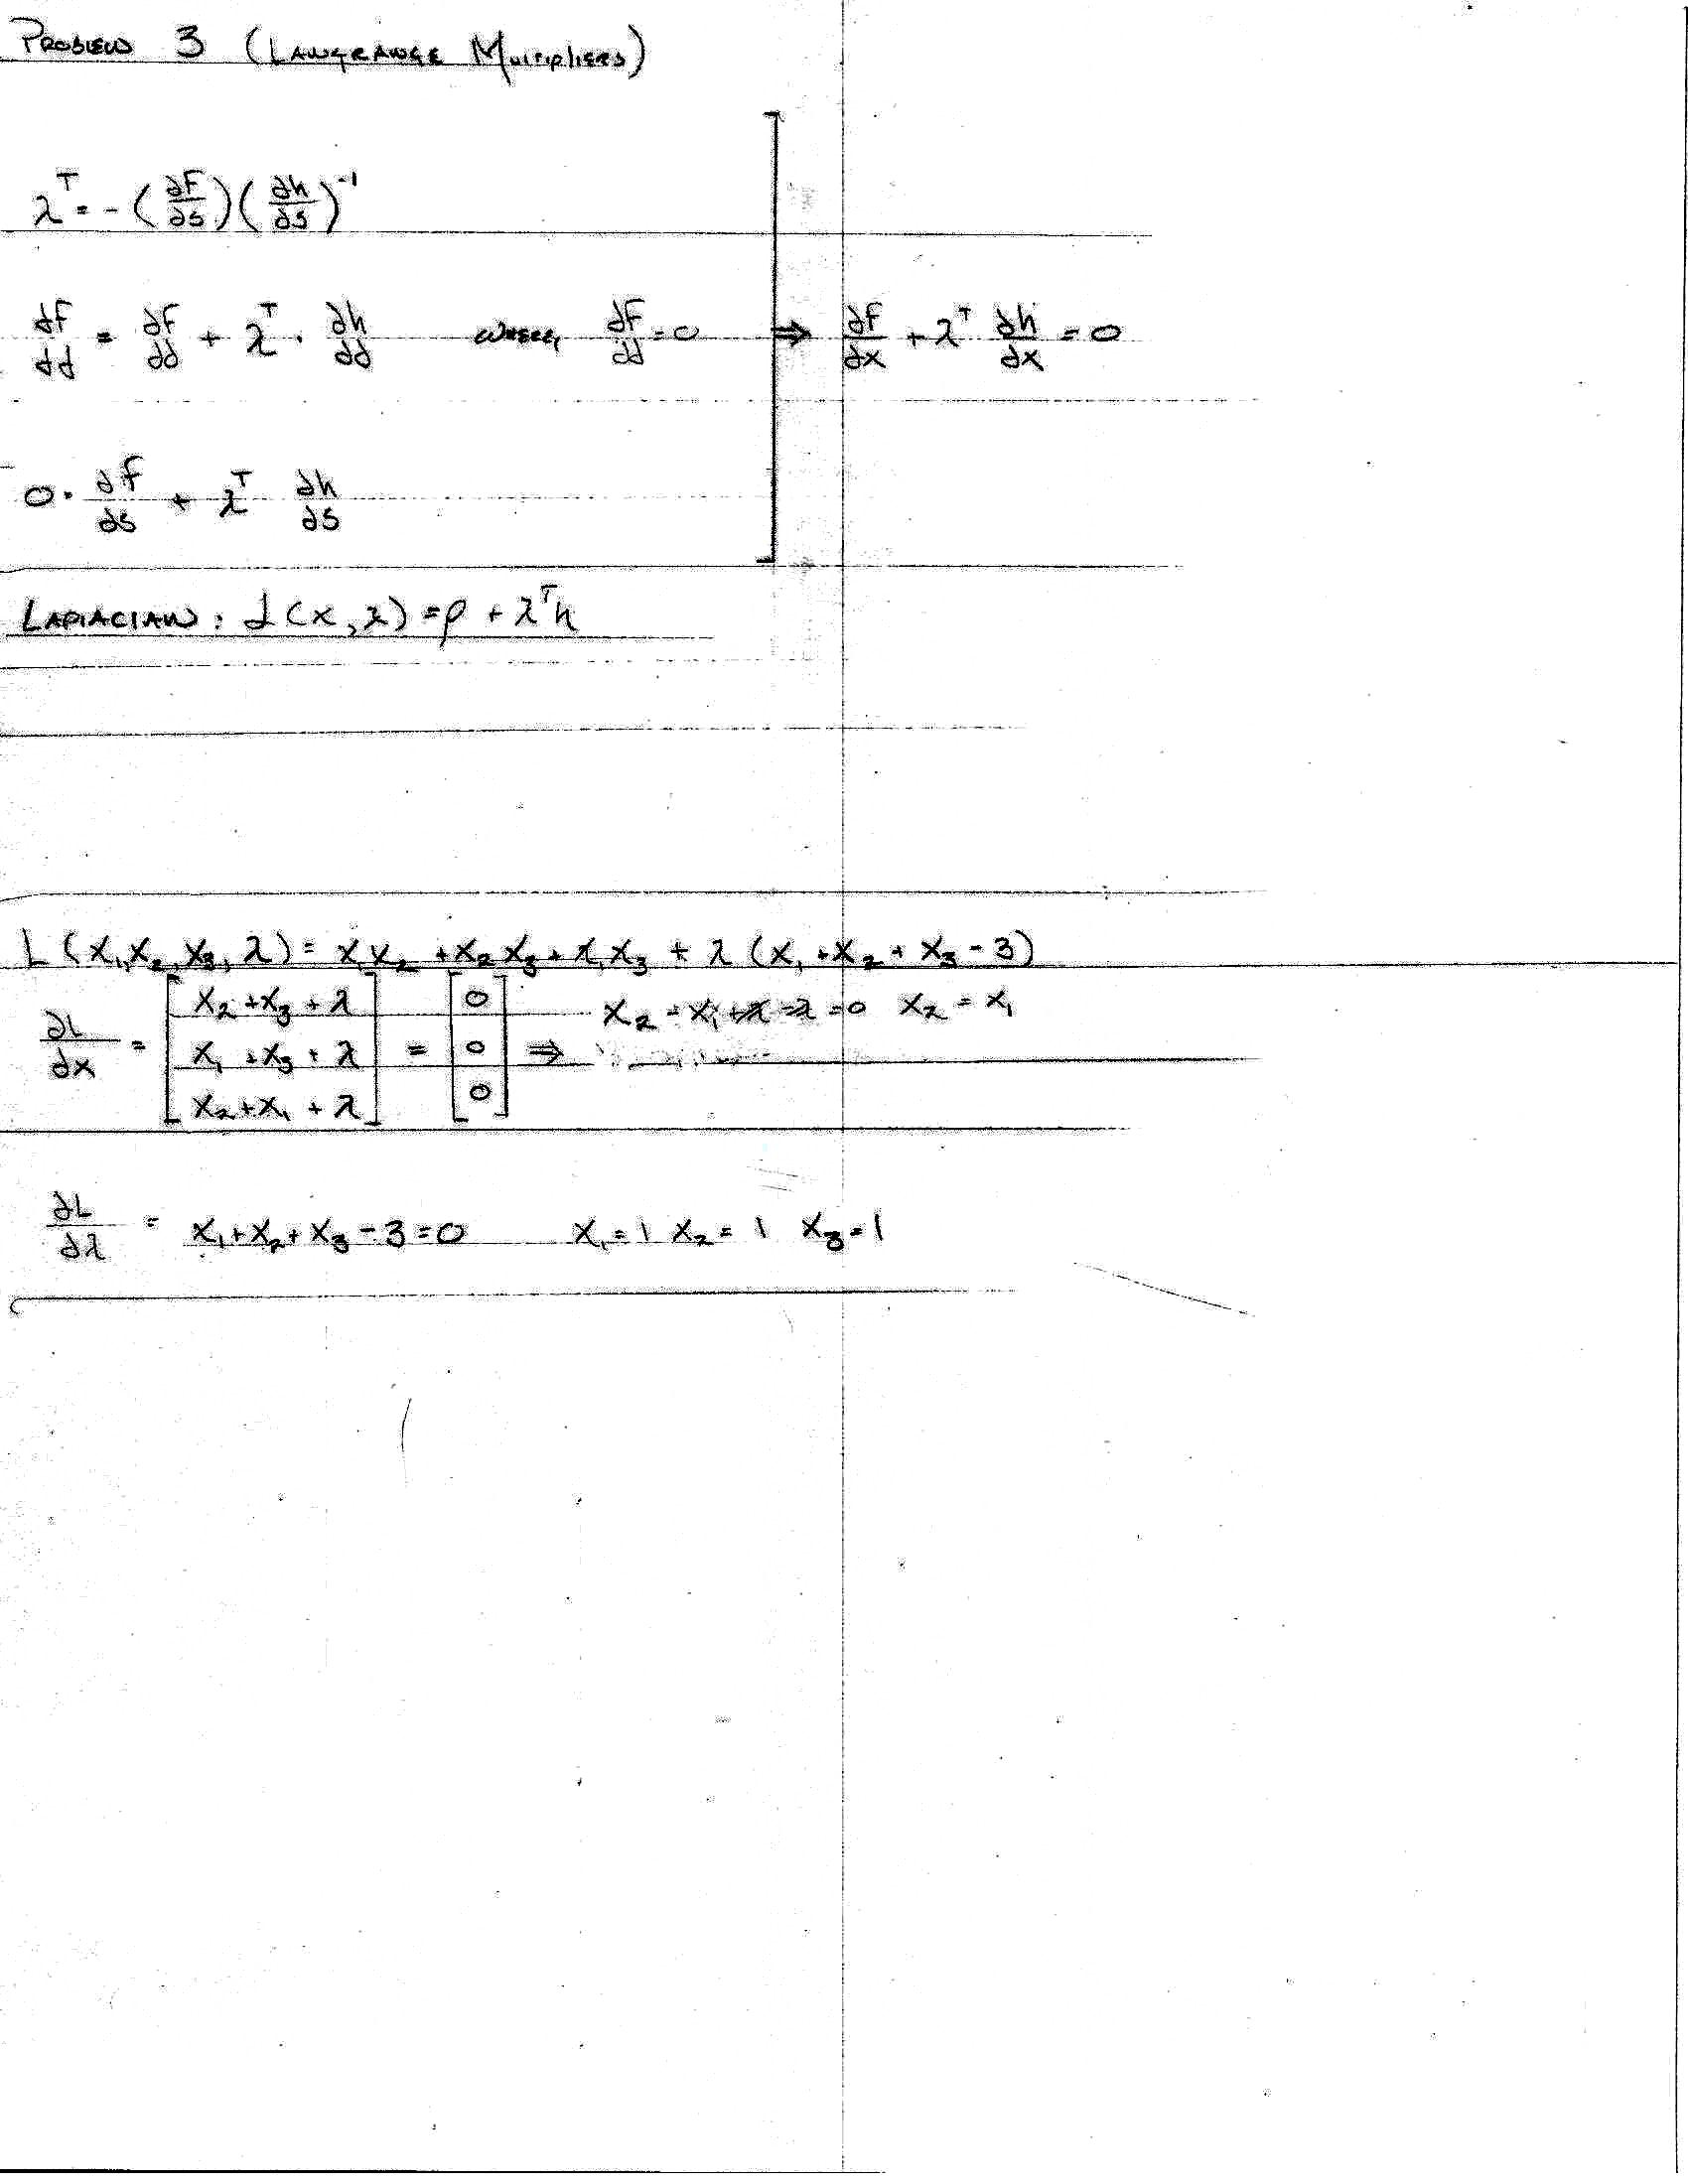 PROBLEM 3 (LANGRANGE MULTIPLIERS)
λᵀ = -(∂F/∂s)(∂h/∂s)⁻¹
∂F/∂d = ∂F/∂d + λᵀ · ∂h/∂d where, ∂F/∂d = 0 ⇒ ∂F/∂x + λᵀ ∂h/∂x = 0
0 = ∂f/∂s + λᵀ ∂h/∂s
LAPLACIAN: L(x, λ) = f + λᵀh
L(x₁, x₂, x₃, λ) = x₁x₂ + x₂x₃ + x₁x₃ + λ(x₁ + x₂ + x₃ - 3)
∂L/∂x = [x₂ + x₃ + λ; x₁ + x₃ + λ; x₂ + x₁ + λ] = [0; 0; 0] ⇒ x₂ - x₁ + λ - λ = 0 x₂ = x₁
∂L/∂λ = x₁ + x₂ + x₃ - 3 = 0 x₁ = 1 x₂ = 1 x₃ = 1